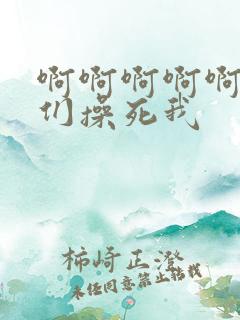 啊啊啊啊啊
们操死我
柿崎正澄
未经同意禁止转载